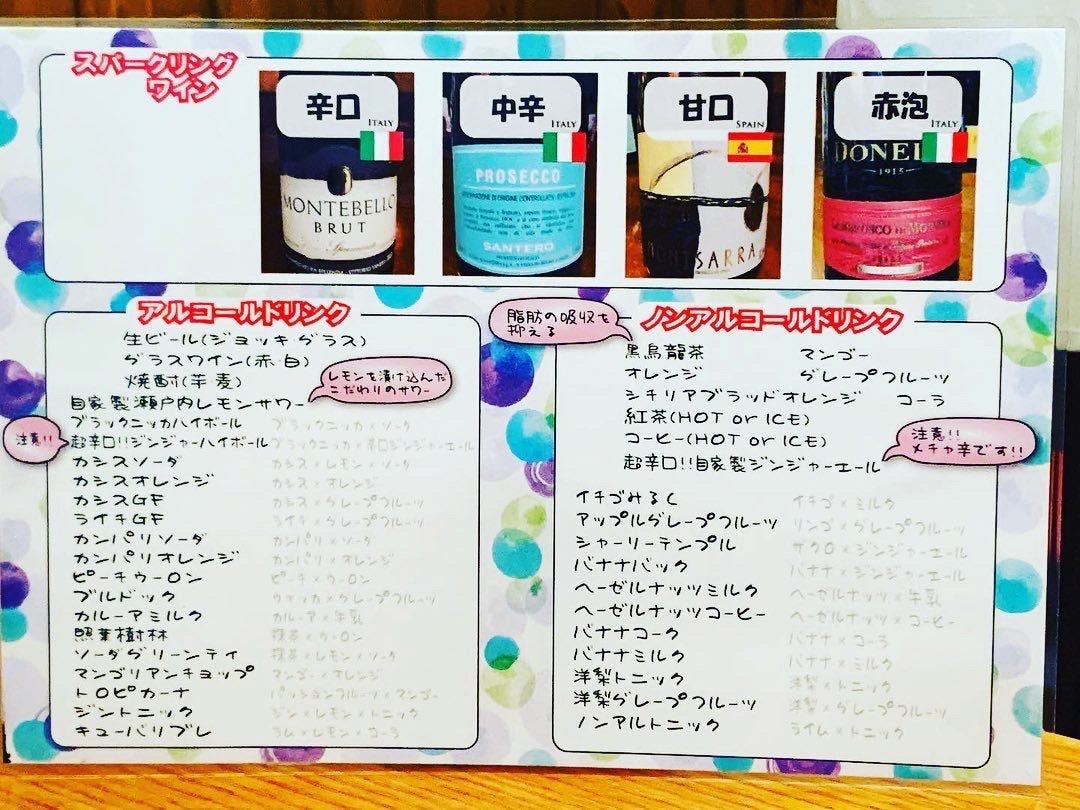 スパークリング
ワイン
辛口
ITALY
MONTEBELLO
BRUT
中辛
ITALY
PROSECCO
SANTERO
甘口
SPAIN
MONTSARRA
赤泡
ITALY
DONEL
1915
アルコールドリンク
生ビール(ジョッキ・グラス)
グラスワイン(赤・白)
焼酎(芋・麦)
レモンを漬け込んだ
こだわりのサワー
自家製瀬戸内レモンサワー
ブラックニッカハイボール ブラックニッカ×ソーダ
注意!!
超辛口!!ジンジャーハイボール ブラックニッカ×辛口ジンジャーエール
カシスソーダ カシス×レモン×ソーダ
カシスオレンジ カシス×オレンジ
カシスGF カシス×グレープフルーツ
ライチGF ライチ×グレープフルーツ
カンパリソーダ カンパリ×ソーダ
カンパリオレンジ カンパリ×オレンジ
ピーチウーロン ピーチ×ウーロン
ブルドック ウォッカ×グレープフルーツ
カルーアミルク カルーア×牛乳
照葉樹林 抹茶×ウーロン
ソーダグリーンティ 抹茶×レモン×ソーダ
マンゴリアンチョップ マンゴー×オレンジ
トロピカーナ パッションフルーツ×マンゴー
ジントニック ジン×レモン×トニック
キューバリブレ ラム×レモン×コーラ
脂肪の吸収を
抑える
ノンアルコールドリンク
黒烏龍茶 マンゴー
オレンジ グレープフルーツ
シチリアブラッドオレンジ コーラ
紅茶(HOT or ICE)
コーヒー(HOT or ICE)
注意!!
メチャ辛です!!
超辛口!!自家製ジンジャーエール
イチゴみるく イチゴ×ミルク
アップルグレープフルーツ リンゴ×グレープフルーツ
シャーリーテンプル ザクロ×ジンジャーエール
バナナバック バナナ×ジンジャーエール
ヘーゼルナッツミルク ヘーゼルナッツ×牛乳
ヘーゼルナッツコーヒー ヘーゼルナッツ×コーヒー
バナナコーク バナナ×コーラ
バナナミルク バナナ×ミルク
洋梨トニック 洋梨×トニック
洋梨グレープフルーツ 洋梨×グレープフルーツ
ノンアルトニック ライム×トニック